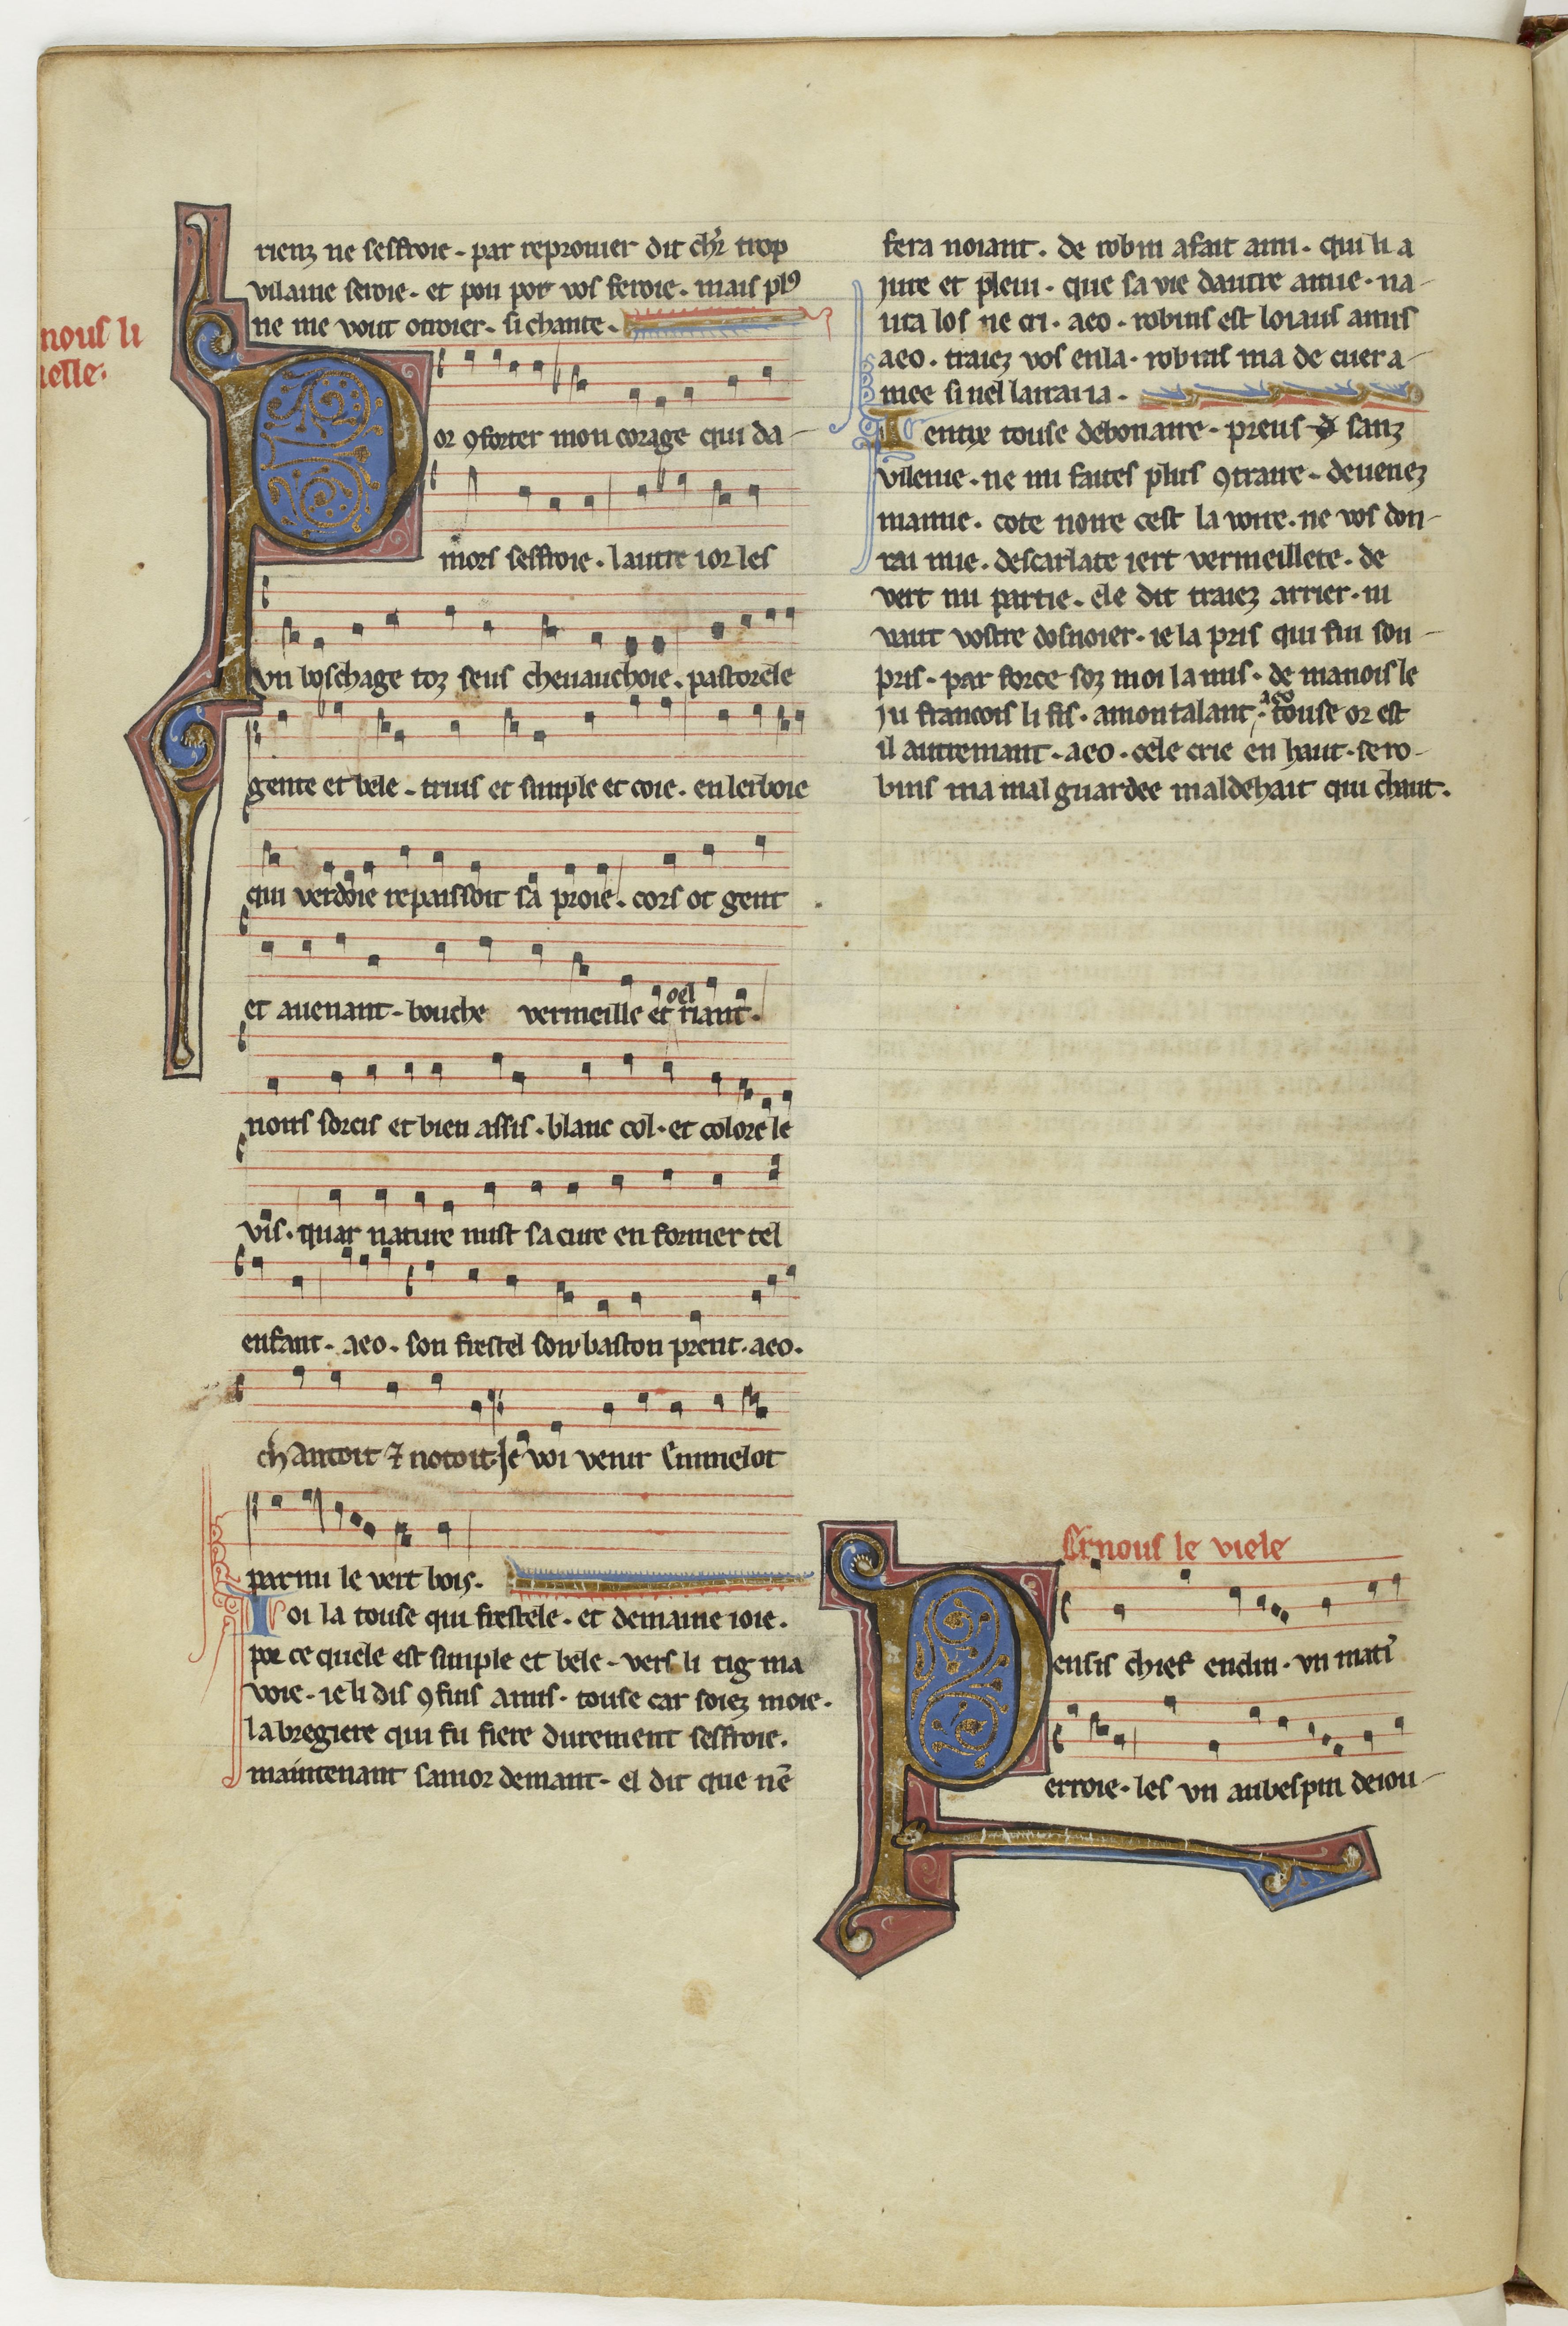 rienz ne seffroie. par reprouier dit chr̄ trop
vilaine seroie. et pou por vos feroie. mais plꝰ
ne me vout otroier. si chante.
nous li
ielle.
Por ꝯforter mon corage qui da-
mors seffroie. lautre ior les
vn boschage toz seus cheuauchoie. pastorele
gente et bele. truis et simple et coie. en lerboie
qui verdoie repaissoit sa proie. cors ot gent
et auenant. bouche vermeille et oel riant.
noirs sorcis et bien assis. blanc col. et colore le
vis. quar nature mist sa cure en former tel
enfant. aeo. son frestel son baston prent. aeo.
chantoit ⁊ notoit. Je voi venir Emmelot
parmi le vert bois.
Joi la touse qui frestele. et demaine ioie.
por ce quele est simple et bele. vers li tig ma
voie. ie li dis ꝯ fins amis. touse car soiez moie.
la bregiere qui fu fiere durement seffroie.
maintenant samor demant. el dit que nē
fera noiant. de robin a fait ami. qui li a
jure et pleui. que sa vie dautre amie. na-
ura los ne cri. aeo. robins est loiaus amis
aeo. traiez vos en la. robins ma de cuer a-
mee si nel lairai ia.
Tentix touse debonaire. preus sanz
vilenie. ne mi faites plus ꝯtraire. deuenez
mamie. cote noire cest la voire. ne vos don-
rai mie. descarlate iert vermeillete. de
vert mi partie. ele dit traiez arrier. ni
vaut vostre dosnoier. ie la pris qui fui sou-
pris. par force soz moi la mis. de manois le
ju francois li fis. a mon talant. aeo touse or est
il autremant. aeo. cele crie en haut. se ro-
bins ma mal guardee maldehait qui chaut.
Ernous le viele
Pensis chief enclin. vn mati̅
erroie. les vn aubespin deiou-